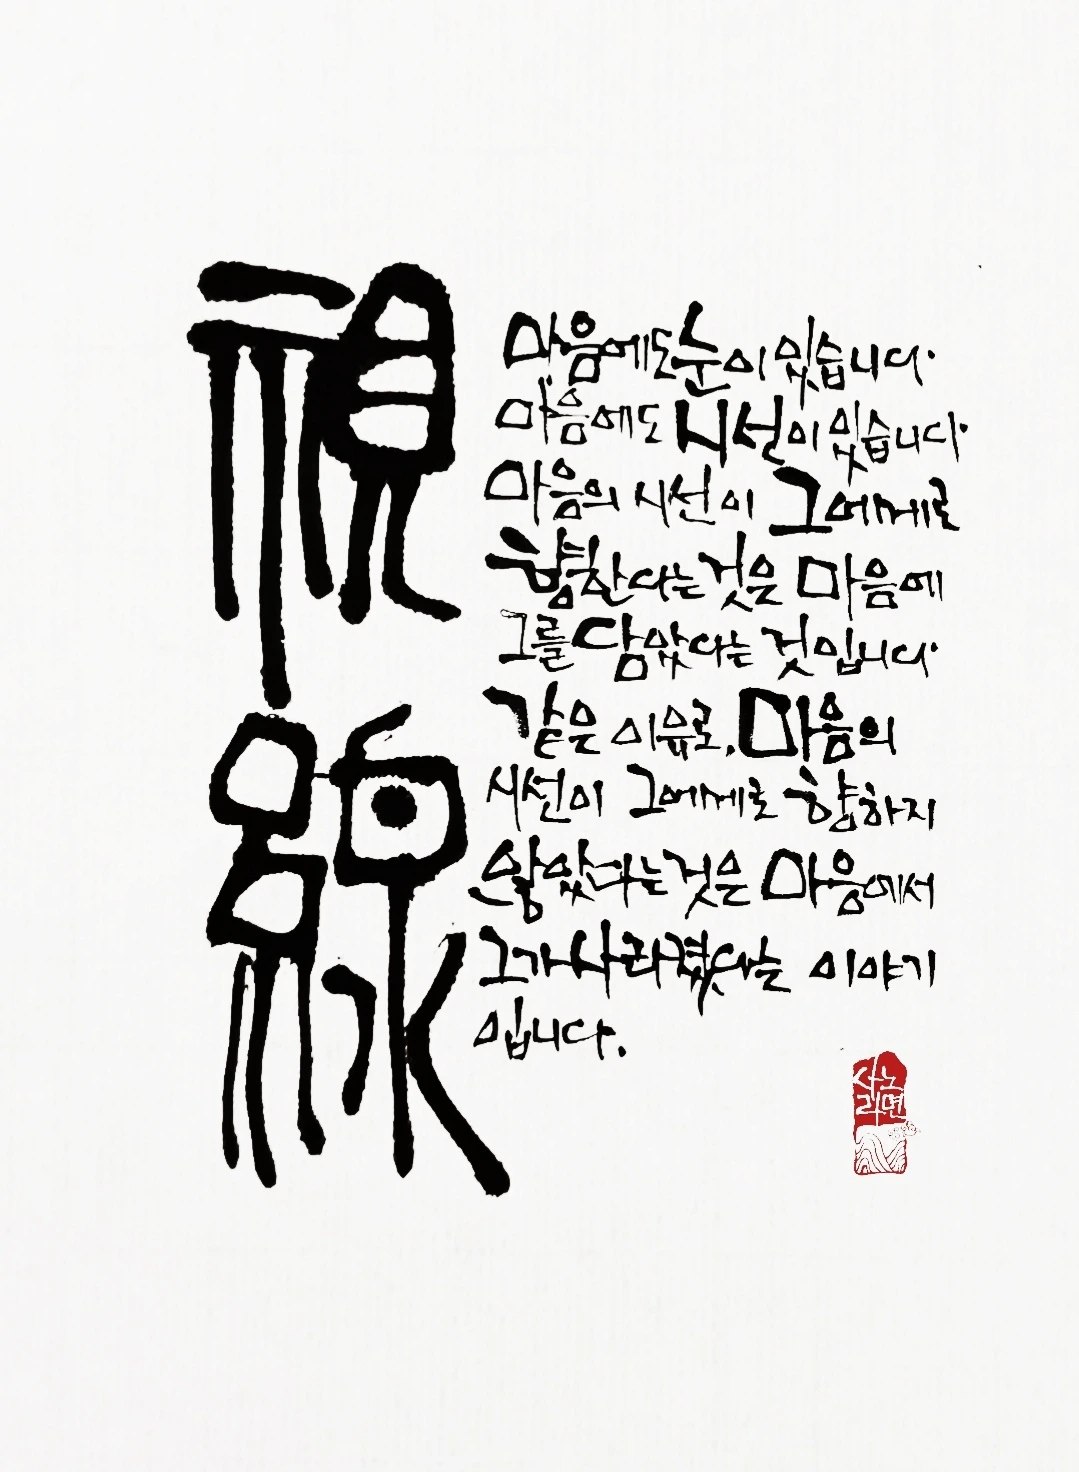 視線
마음에도 눈이 있습니다.
마음에도 시선이 있습니다.
마음의 시선이 그에게로
향한다는 것은 마음에
그를 담았다는 것입니다.
같은 이유로, 마음의
시선이 그에게로 향하지
않았다는 것은 마음에서
그가 사라졌다는 이야기
입니다.
사노
라면